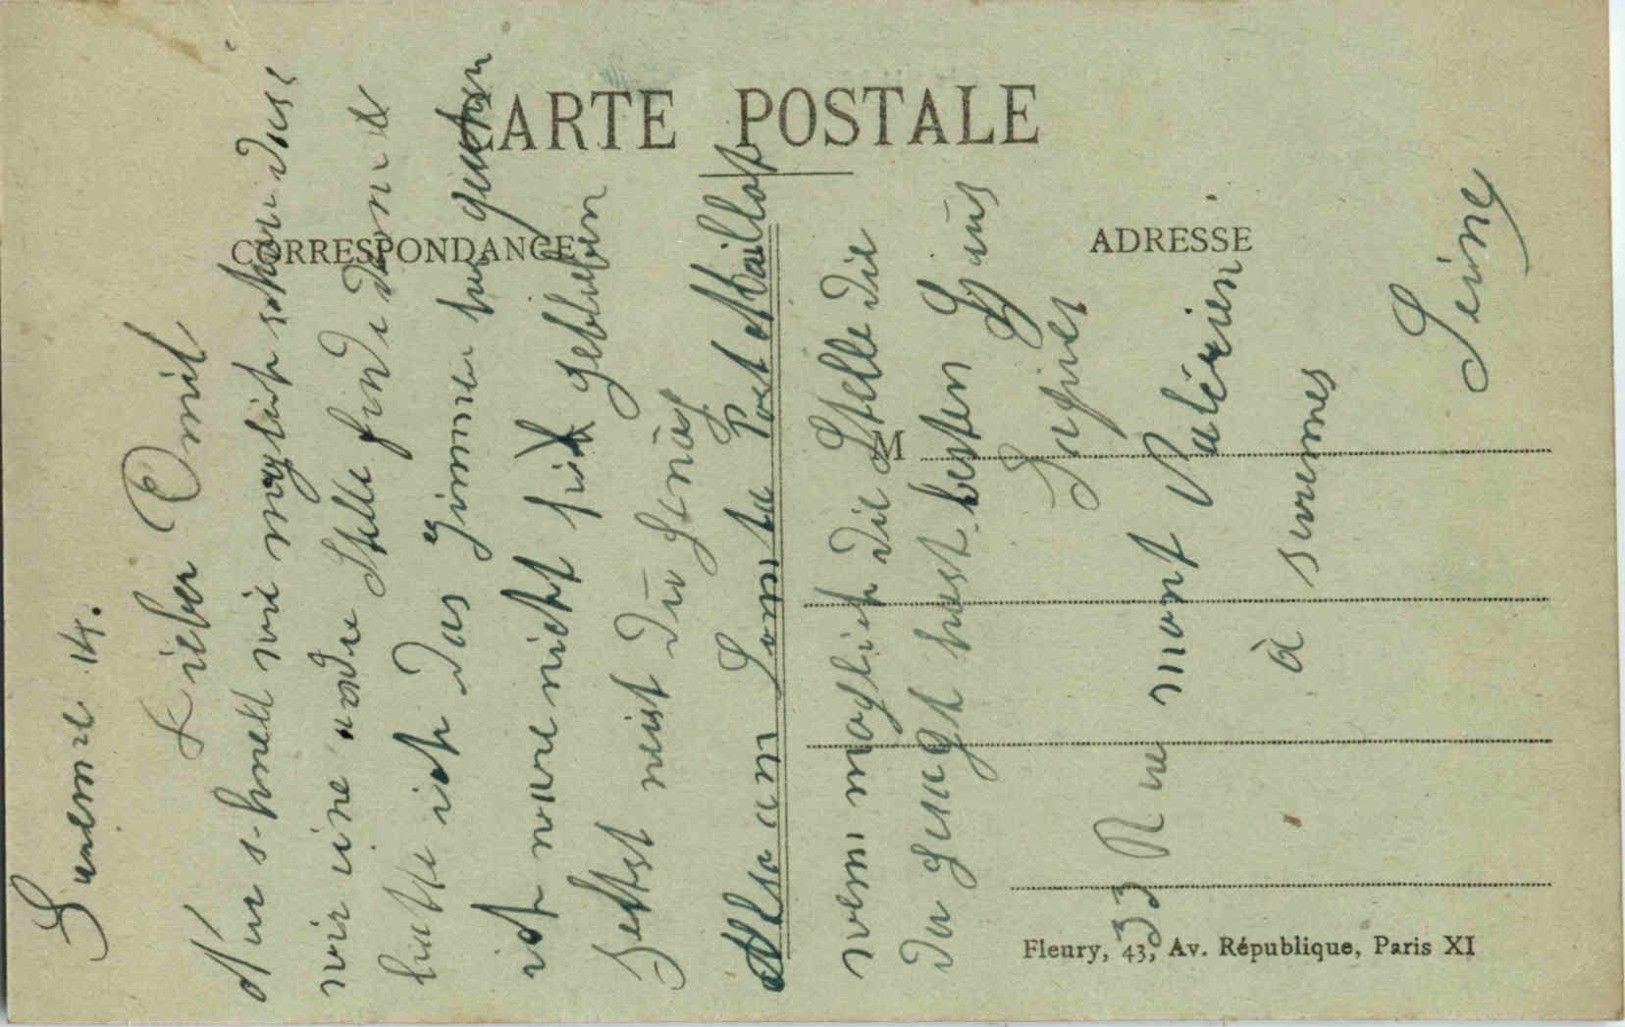 CARTE POSTALE
CORRESPONDANCE
ADRESSE
M
Suresne 14.
Lieber Emil
Nur schnell wie möglich schau dass
wir eine andre Stelle finde denn
hatte ich das Zimmer
ich wäre nicht hir geblieben
selbst weist du
Also am Samstag Port Maillot
wenn möglich die Stelle die
du gesagt hast besten Gruss
33 Rue mont Valérien
à suresnes
Seine
Fleury, 43, Av. République, Paris XI